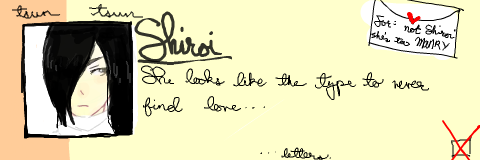 tsun tsun
Shiroi
She looks like the type to never
find love...
... letters.
For: not Shiroi
she's too MANLY